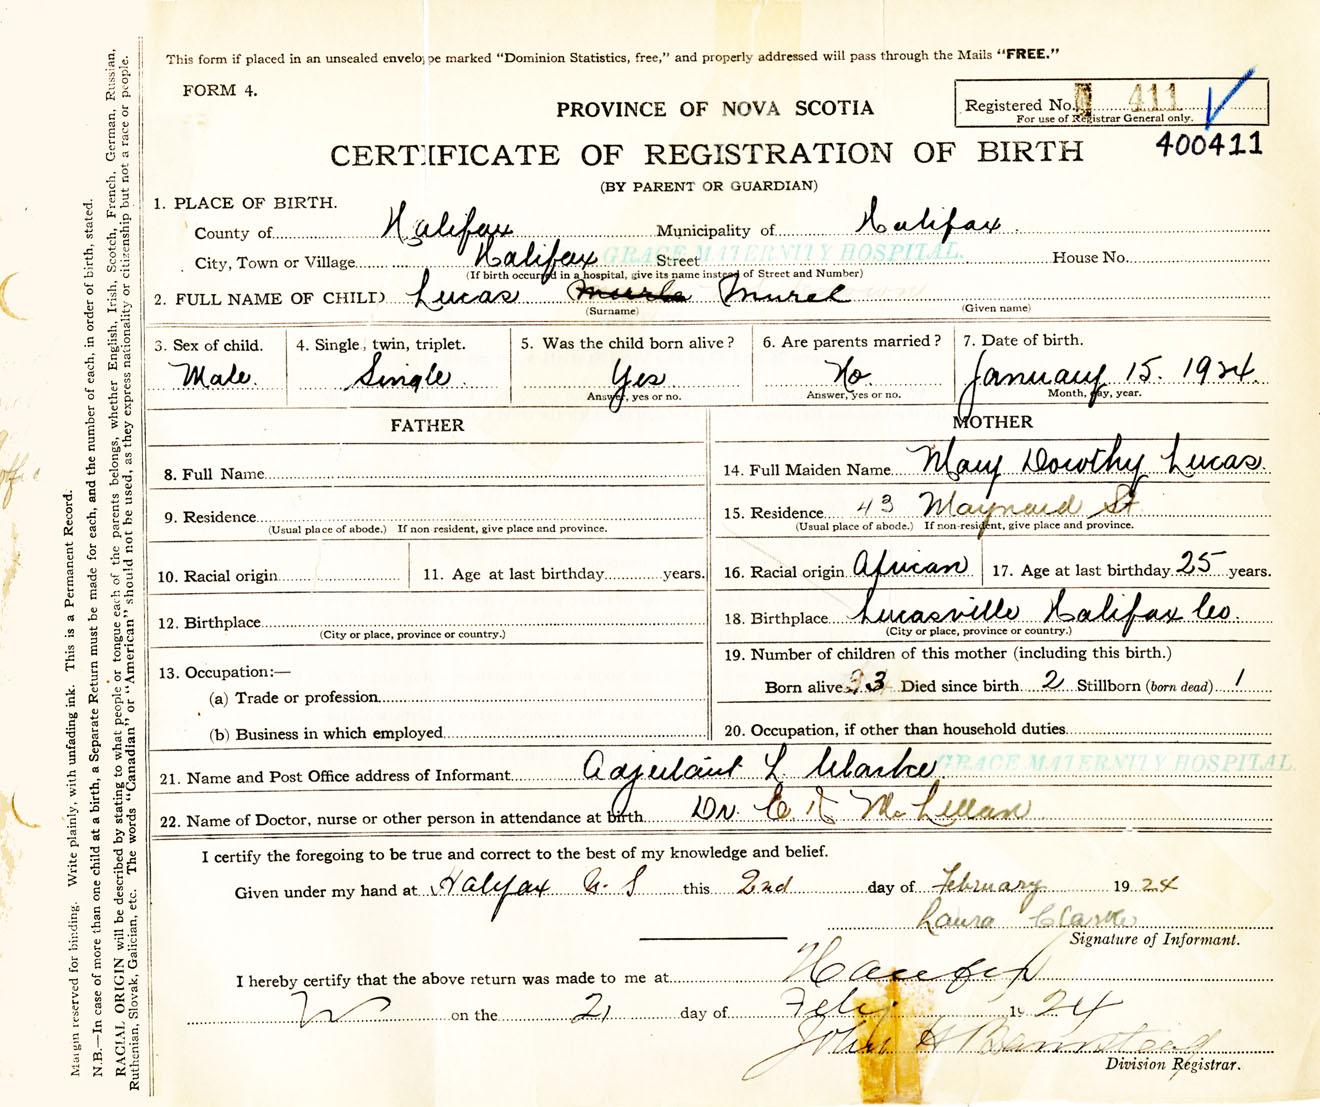 This form if placed in an unsealed envelope marked “Dominion Statistics, free,” and properly addressed will pass through the Mails “FREE.”
FORM 4.
PROVINCE OF NOVA SCOTIA
Registered No. 411
For use of Registrar General only.
400411
CERTIFICATE OF REGISTRATION OF BIRTH
(BY PARENT OR GUARDIAN)
1. PLACE OF BIRTH.
County of Halifax Municipality of Halifax
City, Town or Village Halifax Street GRACE MATERNITY HOSPITAL. House No.
(If birth occurred in a hospital, give its name instead of Street and Number)
2. FULL NAME OF CHILD Lucas Murel
(Surname) (Given name)
3. Sex of child. 4. Single, twin, triplet. 5. Was the child born alive? 6. Are parents married? 7. Date of birth.
Male. Single. Yes No. January 15. 1924.
Answer, yes or no. Answer, yes or no. Month, day, year.
FATHER MOTHER
8. Full Name 14. Full Maiden Name Mary Dorothy Lucas.
9. Residence 15. Residence 43 Maynard St
(Usual place of abode.) If non-resident, give place and province. (Usual place of abode.) If non-resident, give place and province.
10. Racial origin 11. Age at last birthday years. 16. Racial origin African 17. Age at last birthday 25 years.
12. Birthplace 18. Birthplace Lucasville Halifax Co.
(City or place, province or country.) (City or place, province or country.)
13. Occupation:— 19. Number of children of this mother (including this birth.)
(a) Trade or profession Born alive 3 Died since birth 2 Stillborn (born dead) 1
(b) Business in which employed 20. Occupation, if other than household duties
21. Name and Post Office address of Informant Adjutant L. Clarke GRACE MATERNITY HOSPITAL.
22. Name of Doctor, nurse or other person in attendance at birth Dr. E. K McLellan
I certify the foregoing to be true and correct to the best of my knowledge and belief.
Given under my hand at Halifax N. S this 2nd day of February 1924
Laura Clarke
Signature of Informant.
I hereby certify that the above return was made to me at Halifax
on the 21 day of Feby 1924
John H Barnstead
Division Registrar.
Margin reserved for binding. Write plainly, with unfading ink. This is a Permanent Record.
N.B.—In case of more than one child at a birth, a Separate Return must be made for each, and the number of each, in order of birth, stated.
RACIAL ORIGIN will be described by stating to what people or tongue each of the parents belongs, whether English, Irish, Scotch, French, German, Russian,
Ruthenian, Slovak, Galician, etc. The words “Canadian” or “American” should not be used, as they express nationality or citizenship but not a race or people.